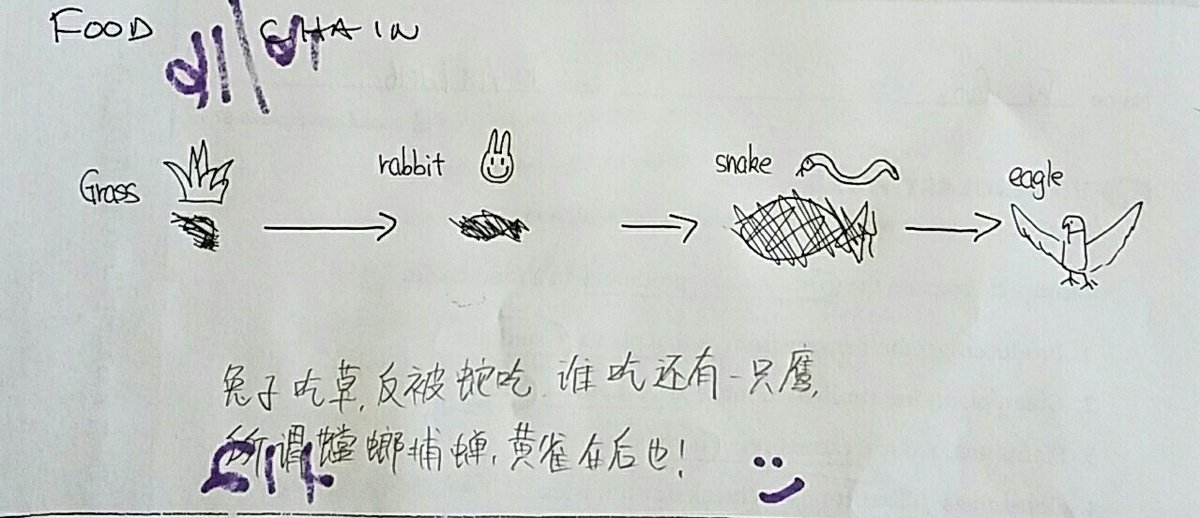 FOOD CHAIN
Grass
rabbit
snake
eagle
兔子吃草,反被蛇吃.谁吃还有一只鹰,
所谓螳螂捕蝉,黄雀在后也!